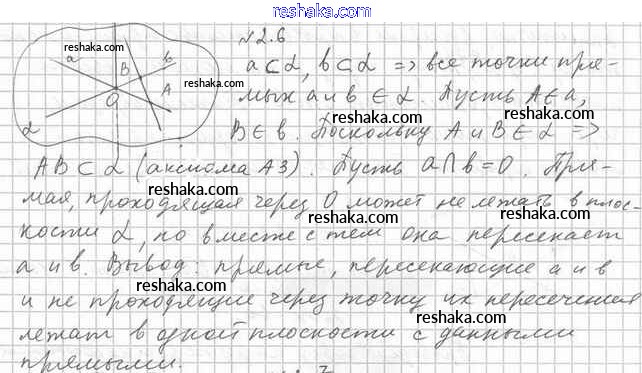 reshaka.com
№2.6
a b B A O α
a⊂α, b⊂α => все точки пря-
мых a и b ∈ α. Пусть A∈a,
B∈b. Поскольку A и B∈α =>
AB⊂α (аксиома A3). Пусть a∩b=O. Пря-
мая, проходящая через O может не лежать в плос-
кости α, но вместе с тем она пересекает
a и b. Вывод: прямые, пересекающие a и b
и не проходящие через точку их пересечения
лежат в одной плоскости с данными
прямыми.
reshaka.com
reshaka.com
reshaka.com
reshaka.com
reshaka.com
reshaka.com
reshaka.com
reshaka.com
reshaka.com
reshaka.com
reshaka.com
reshaka.com